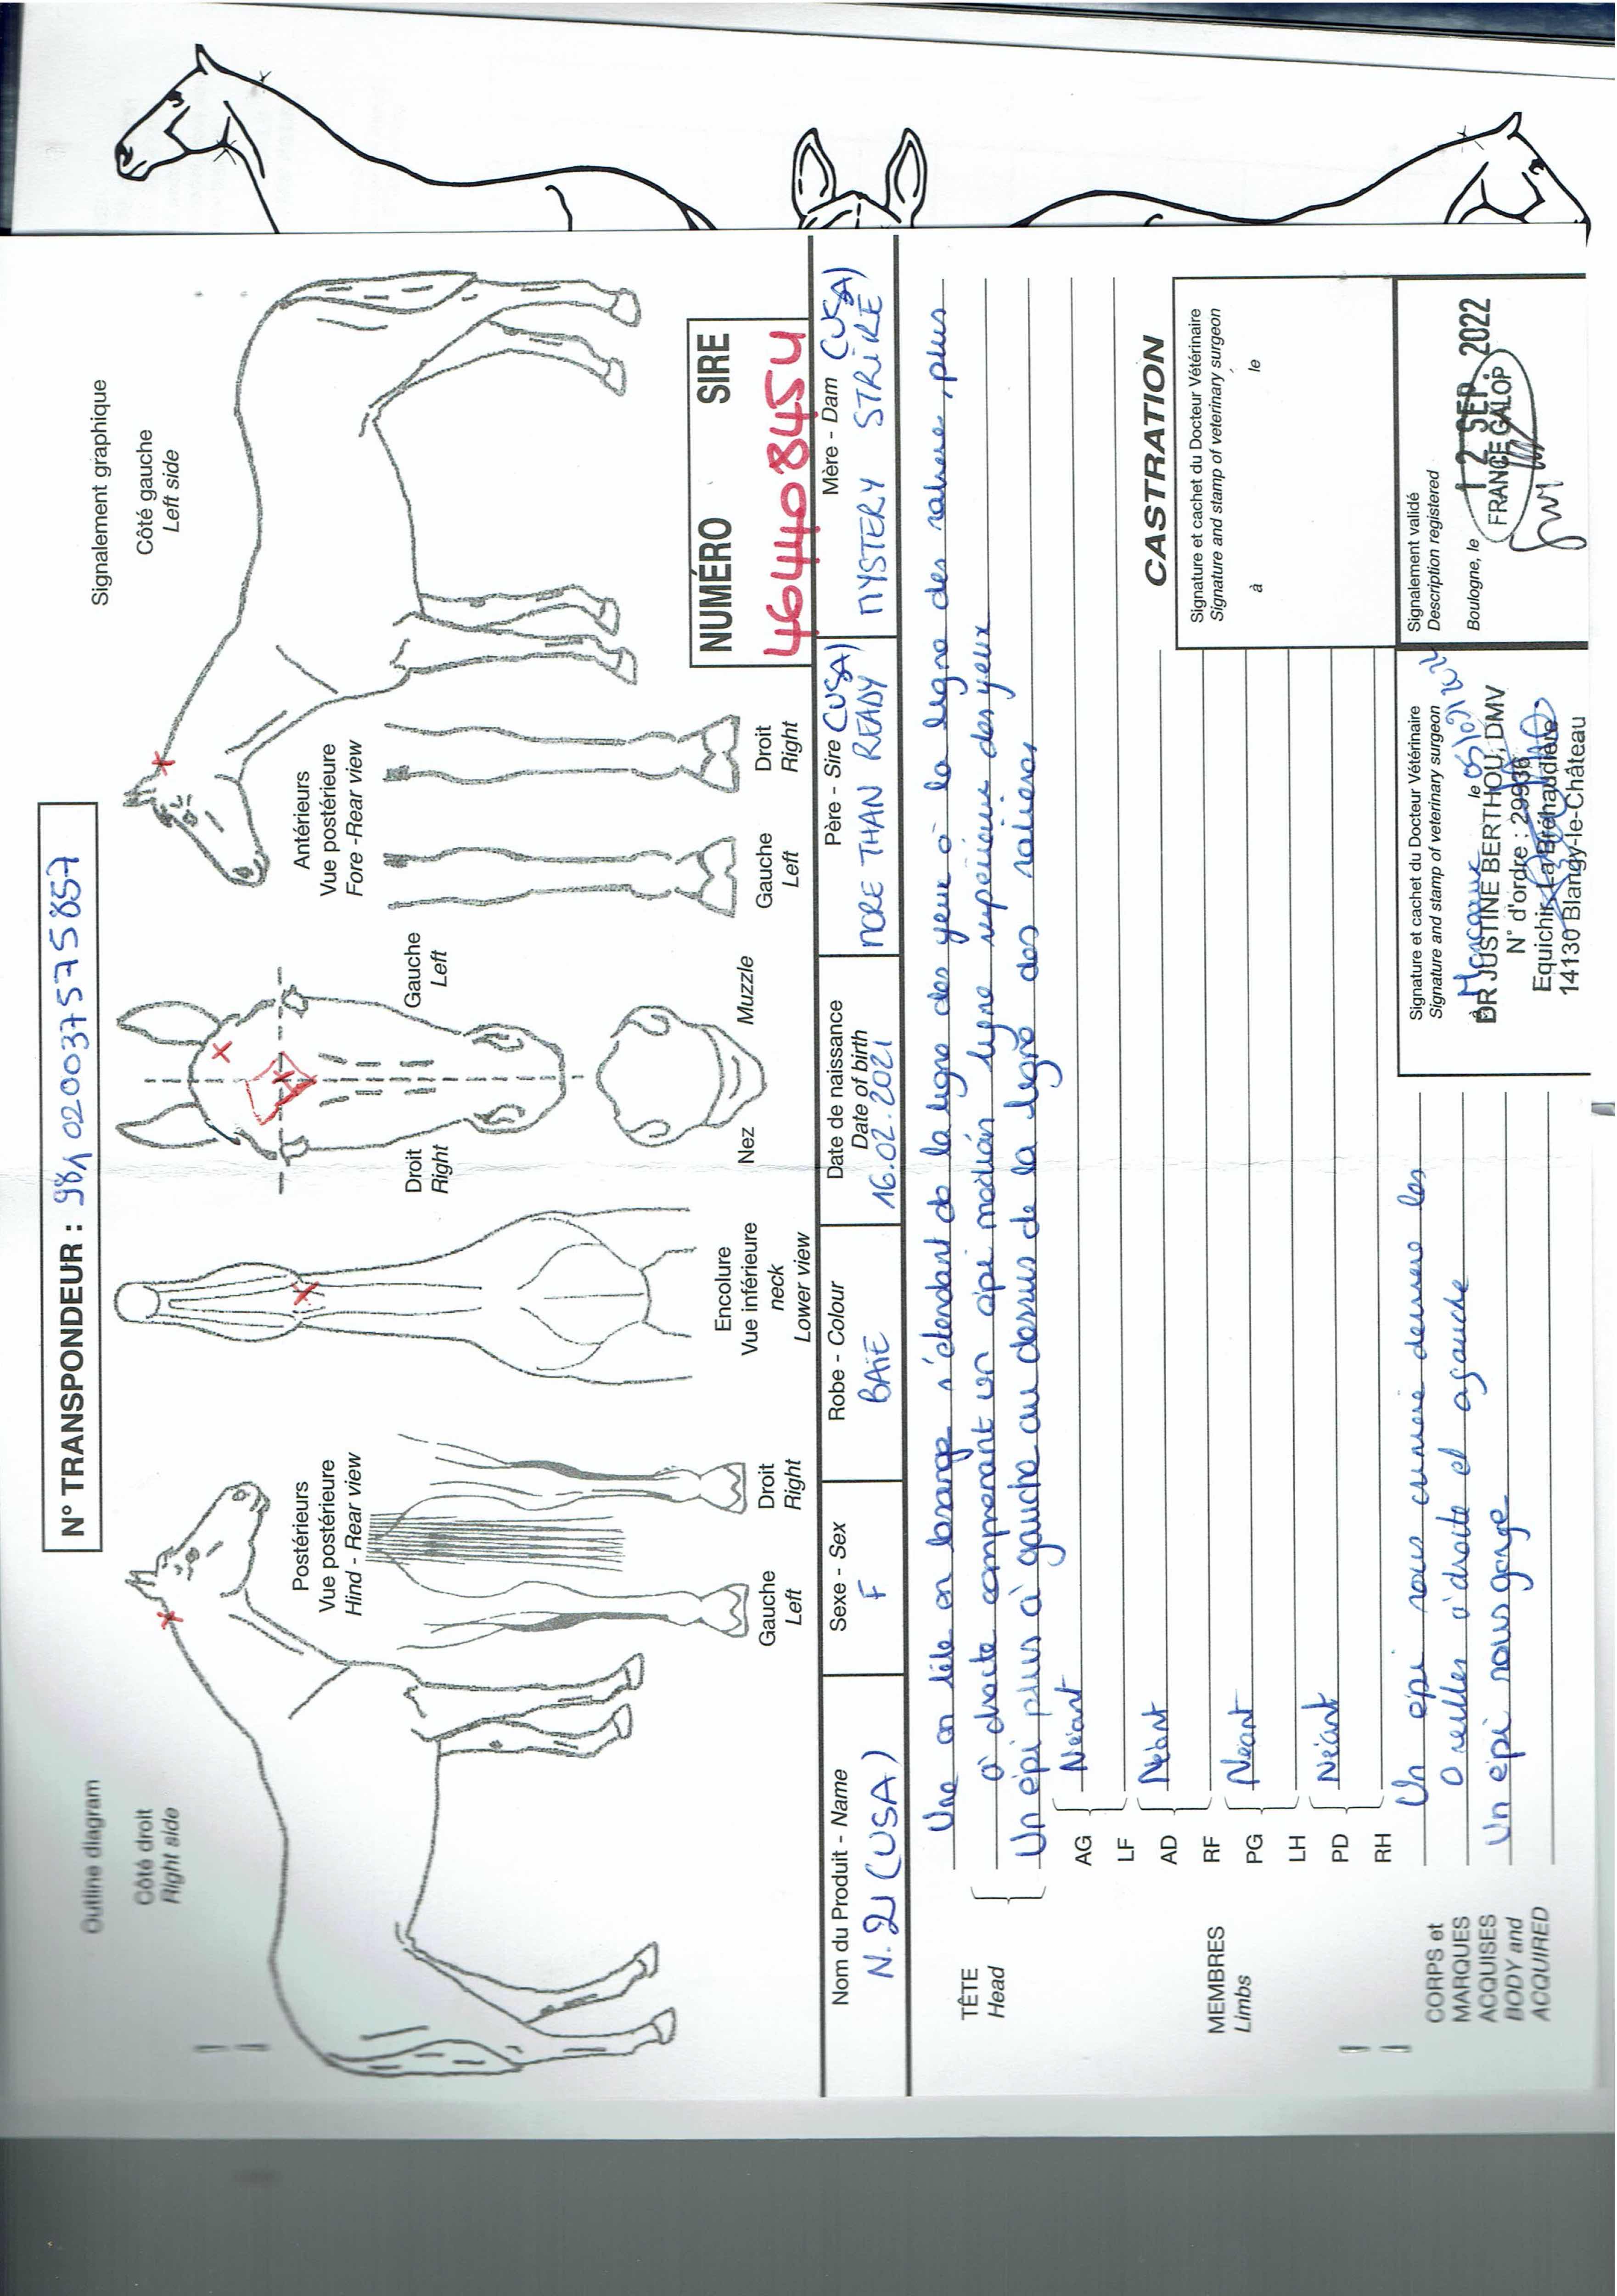 N° TRANSPONDEUR : 981020037575857
Outline diagram
Côté droit
Right side
Signalement graphique
Côté gauche
Left side
Postérieurs
Vue postérieure
Hind - Rear view
Gauche
Left
Droit
Right
Encolure
Vue inférieure
neck
Lower view
Droit
Right
Gauche
Left
Nez
Muzzle
Antérieurs
Vue postérieure
Fore -Rear view
Gauche
Left
Droit
Right
NUMÉRO SIRE
46440845U
Nom du Produit - Name
N. 21 (USA)
Sexe - Sex
F
Robe - Colour
BAIE
Date de naissance
Date of birth
16.02.2021
Père - Sire (USA)
MORE THAN READY
Mère - Dam (USA)
MYSTERY STRIKE
TÊTE
Head
Une en tête en losange s'étendant de la ligne des yeux à la ligne des salières, plus
à droite comprenant un épi médian ligne supérieure des yeux
Un épi plus à gauche au dessus de la ligne des salières
MEMBRES
Limbs
AG
LF
Néant
AD
RF
Néant
PG
LH
Néant
PD
RH
Néant
CORPS et
MARQUES
ACQUISES
BODY and
ACQUIRED
Un épi sous crinière derrière les
oreilles à droite et à gauche
Un épi sous gorge
CASTRATION
Signature et cachet du Docteur Vétérinaire
Signature and stamp of veterinary surgeon
à le
Signature et cachet du Docteur Vétérinaire
Signature and stamp of veterinary surgeon
à le
DR JUSTINE BERTHOU, DMV
N° d'ordre : 29936
Equichir, La Bréhaudière
14130 Blangy-le-Château
Signalement validé
Description registered
Boulogne, le
12 SEP. 2022
FRANCE GALOP